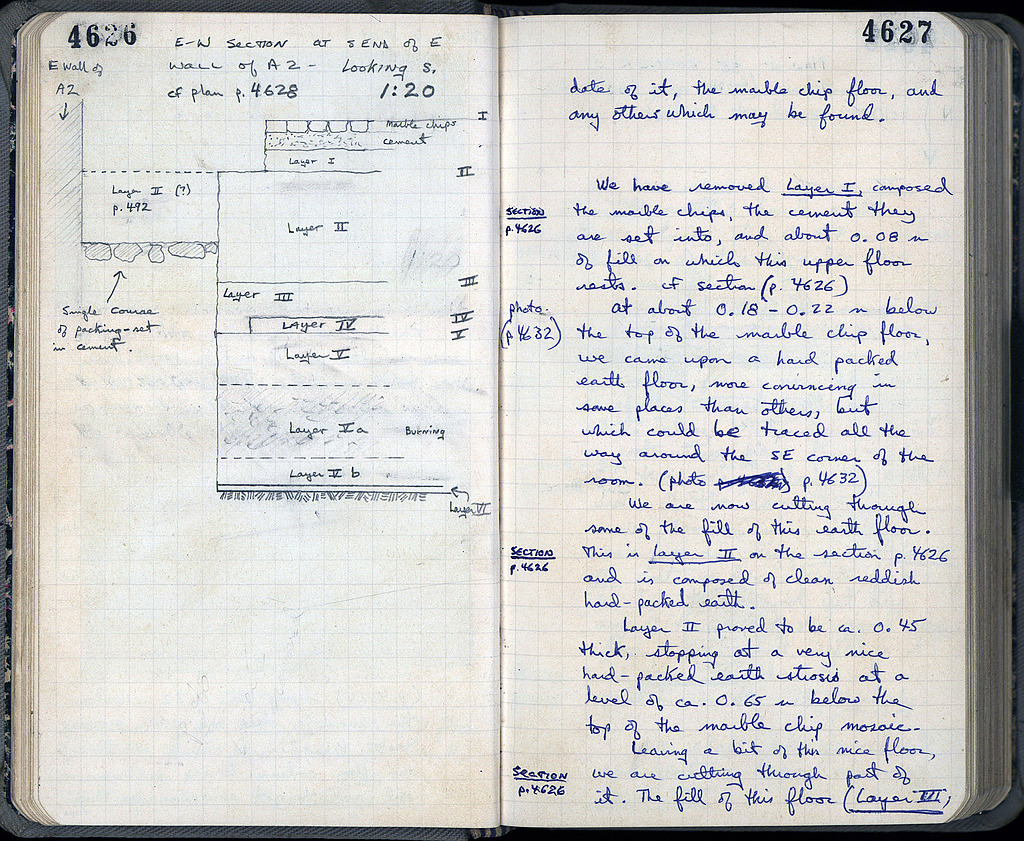 4626
E-W Section at S End of E
Wall of A2 - Looking S.
cf plan p. 4628 1:20
E Wall of
A2
Marble chips
cement
Layer I
I
II
Layer II (?)
p. 492
Layer II
Single course
of packing-set
in cement.
III
Layer III
IV
Layer IV
V
Layer V
Layer Va Burning
Layer V b
Layer VI
4627
date of it, the marble chip floor, and
any others which may be found.
We have removed Layer I, composed
SECTION
p. 4626
the marble chips, the cement they
are set into, and about 0.08 m
of fill on which this upper floor
rests. cf section (p. 4626)
photo.
(p 4632)
At about 0.18 - 0.22 m below
the top of the marble chip floor,
we came upon a hard packed
earth floor, more convincing in
some places than others, but
which could be traced all the
way around the SE corner of the
room. (photo p. 4632)
We are now cutting through
some of the fill of this earth floor.
SECTION
p. 4626
This is Layer II on the section p. 4626
and is composed of clean reddish
hard-packed earth.
Layer II proved to be ca. 0.45
thick, stopping at a very nice
hard-packed earth strosis at a
level of ca. 0.65 m below the
top of the marble chip mosaic.
Leaving a bit of this nice floor,
SECTION
p. 4626
we are cutting through part of
it. The fill of this floor (Layer III,